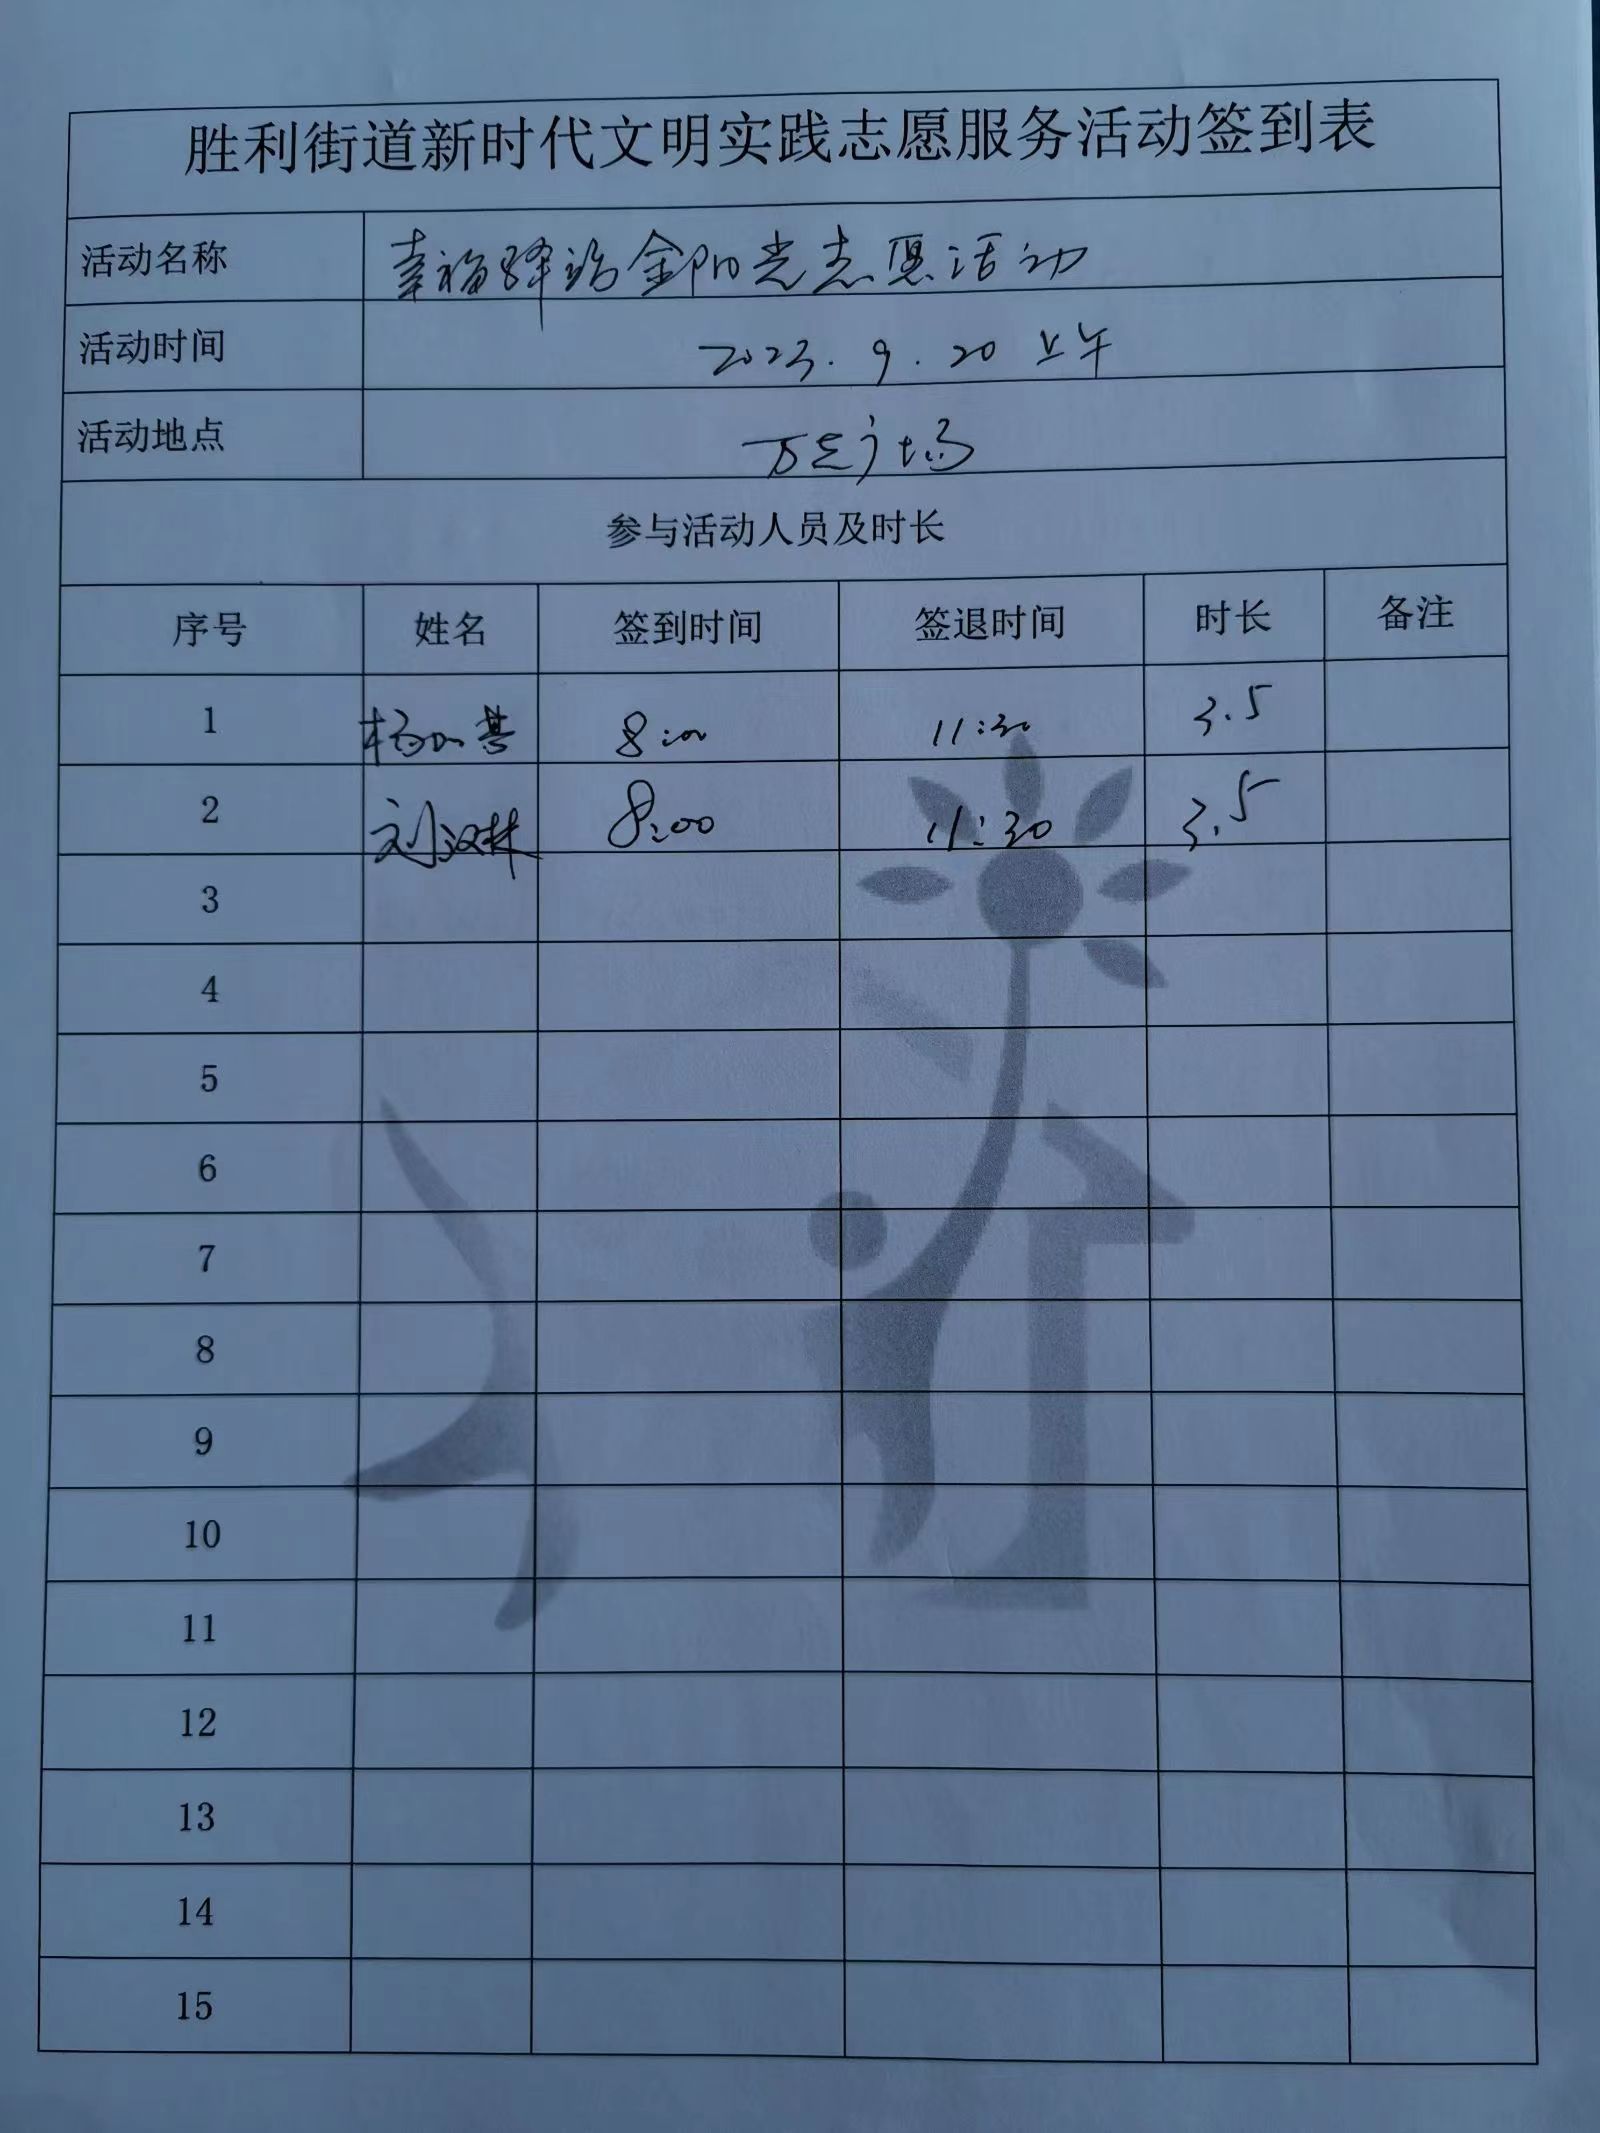 胜利街道新时代文明实践志愿服务活动签到表
活动名称 幸福驿站金阳光志愿活动
活动时间 2023.9.20 上午
活动地点 万达广场
参与活动人员及时长
序号 姓名 签到时间 签退时间 时长 备注
1 8:00 11:30 3.5
2 刘汉林 8:00 11:30 3.5
3
4
5
6
7
8
9
10
11
12
13
14
15